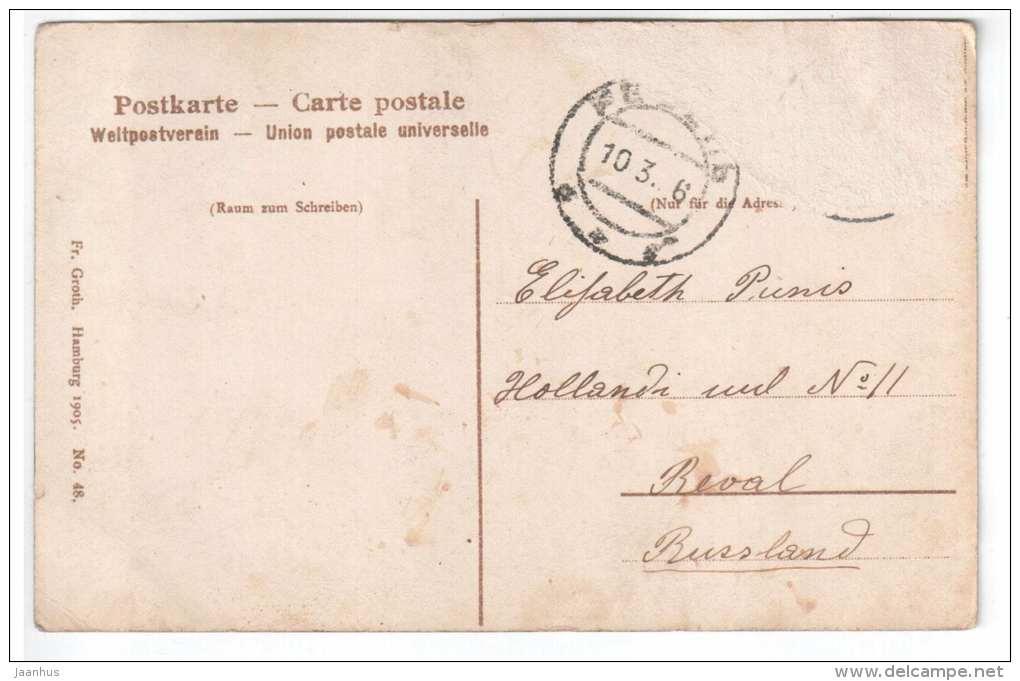 Postkarte — Carte postale
Weltpostverein — Union postale universelle
(Raum zum Schreiben)
(Nur für die Adres
10 3. 6
Elisabeth Punis
Hollandi uul No 11
Reval
Russland
Fr. Groth. Hamburg 1905. No. 48.
jaanhus
www.delcampe.net